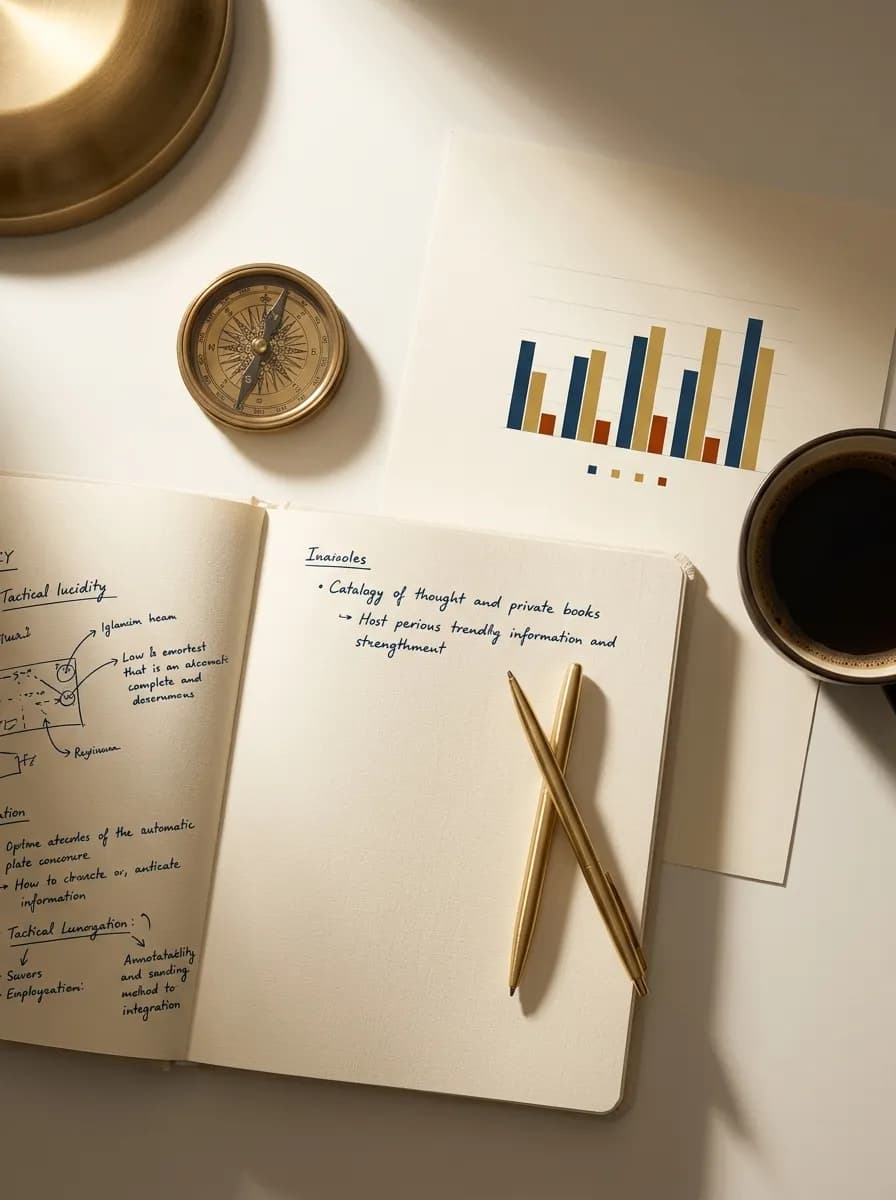 Tactical lucidity
Iglancim heam
Low & emortest
that is an
complete and
Optime of the automatic
plate concoure
→ How to or, anticate
information
Tactical Lunorgation:
Suvers
Employcation:
Annotatability
and sanding
method to
integration
Inaiooles
• Catalogy of thought and private books
→ Host perious trendlly information and
strengthment